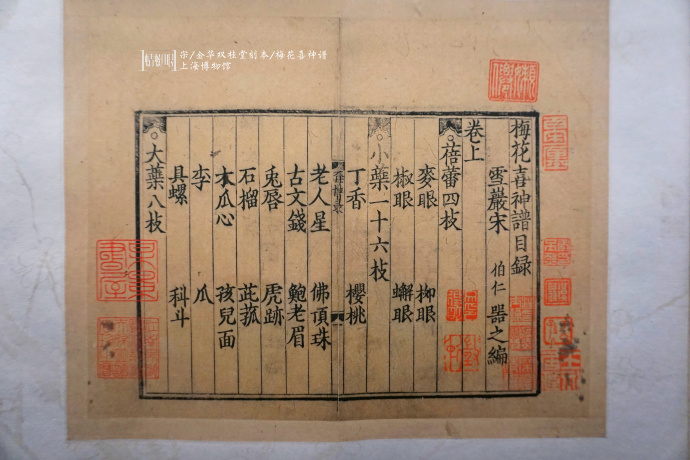 宗/金华双桂堂刻本/梅花喜神谱
上海博物馆
梅花喜神譜目録
雪巖宋 伯仁 器之編
卷上
蓓蕾四枝
麥眼 柳眼
椒眼 蠏眼
小蘂一十六枝
丁香 櫻桃
老人星 佛頂珠
古文錢 鮑老眉
兎唇 虎跡
石榴 茈菰
木瓜心 孩兒面
李 瓜
具螺 科斗
大蘂八枝